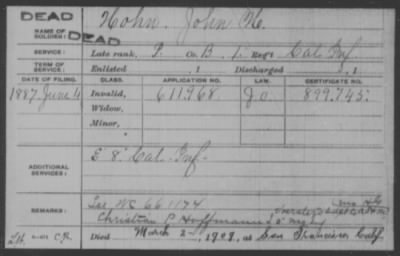 DEAD
NAME OF SOLDIER: Hohn, John H.
DEAD
SERVICE: Late rank, P. Co. B, 1. Reg't Cal Inf.
TERM OF SERVICE: Enlisted , 1 Discharged , 1
DATE OF FILING. CLASS. APPLICATION NO. LAW. CERTIFICATE NO.
1887 June 4 Invalid, 611968 J.O. 899.745.
Widow,
Minor,
ADDITIONAL SERVICES: E 8" Cal. Inf.
REMARKS: See WC 661174
Christian P Hoffmann
Died March 2 1909, at San Francisco Calif